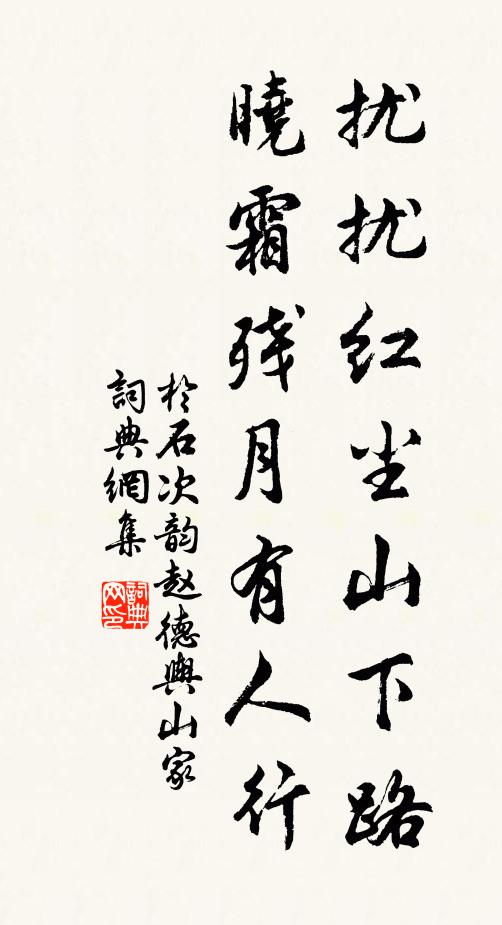 扰扰红尘山下路
曉霜残月有人行
於石次韵赵德興山家
詞典網集
詞典
网印